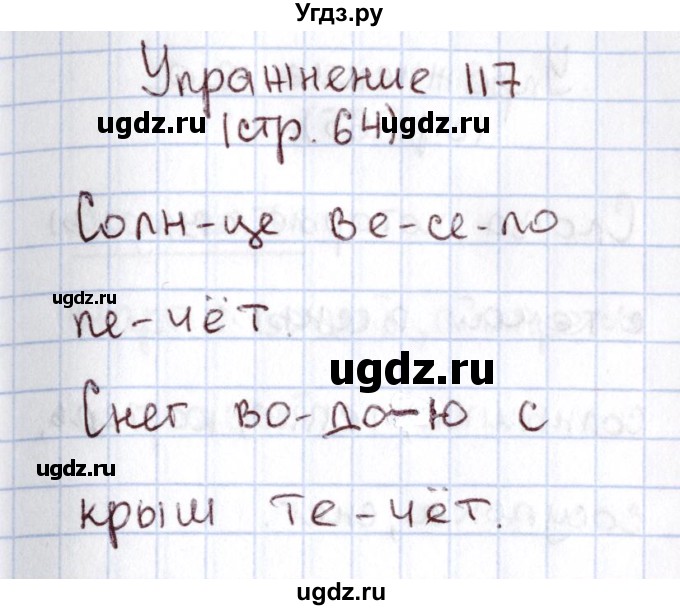 Угдз.ру
Упражнение 117
ugdz.ru ugdz.ru
(стр. 64)
Солн-це ве-се-ло
ugdz.ru
пе-чёт.
ugdz.ru
Снег во-до-ю с
ugdz.ru
крыш те-чёт.
ugdz.ru